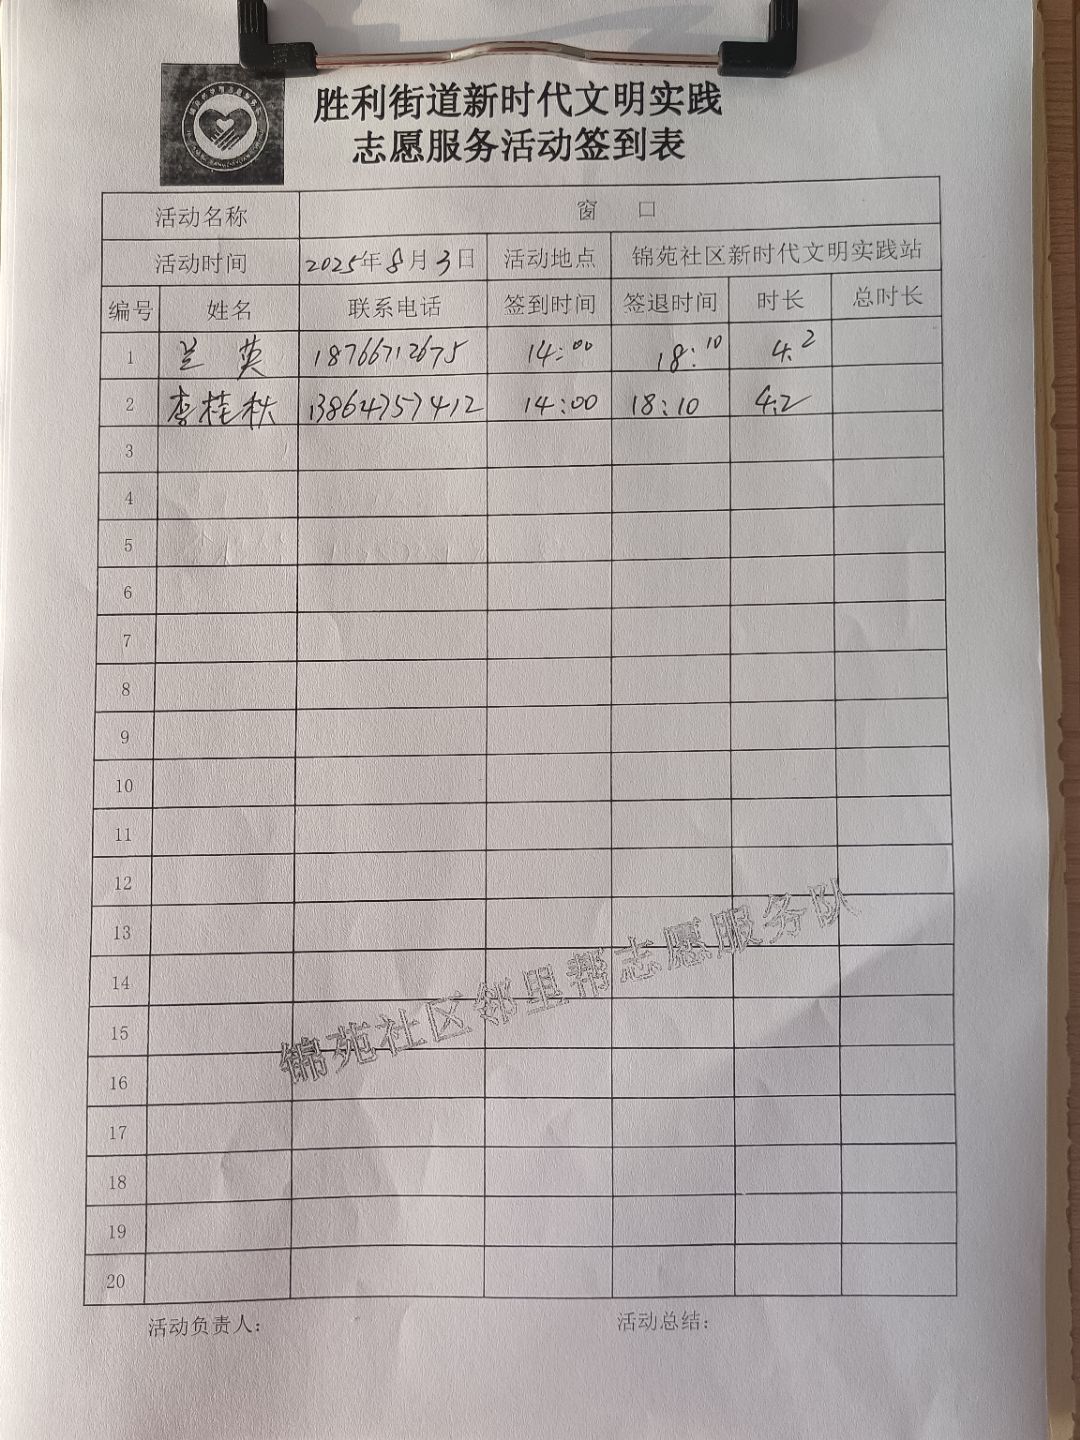 胜利街道新时代文明实践
志愿服务活动签到表
活动名称 窗 口
活动时间 2025年8月3日 活动地点 锦苑社区新时代文明实践站
编号 姓名 联系电话 签到时间 签退时间 时长 总时长
1 兰 英 18766712675 14:00 18:10 4.2
2 李桂秋 13864757412 14:00 18:10 4.2
3
4
5
6
7
8
9
10
11
12
13
14
15
16
17
18
19
20
锦苑社区邻里帮志愿服务队
活动负责人: 活动总结: